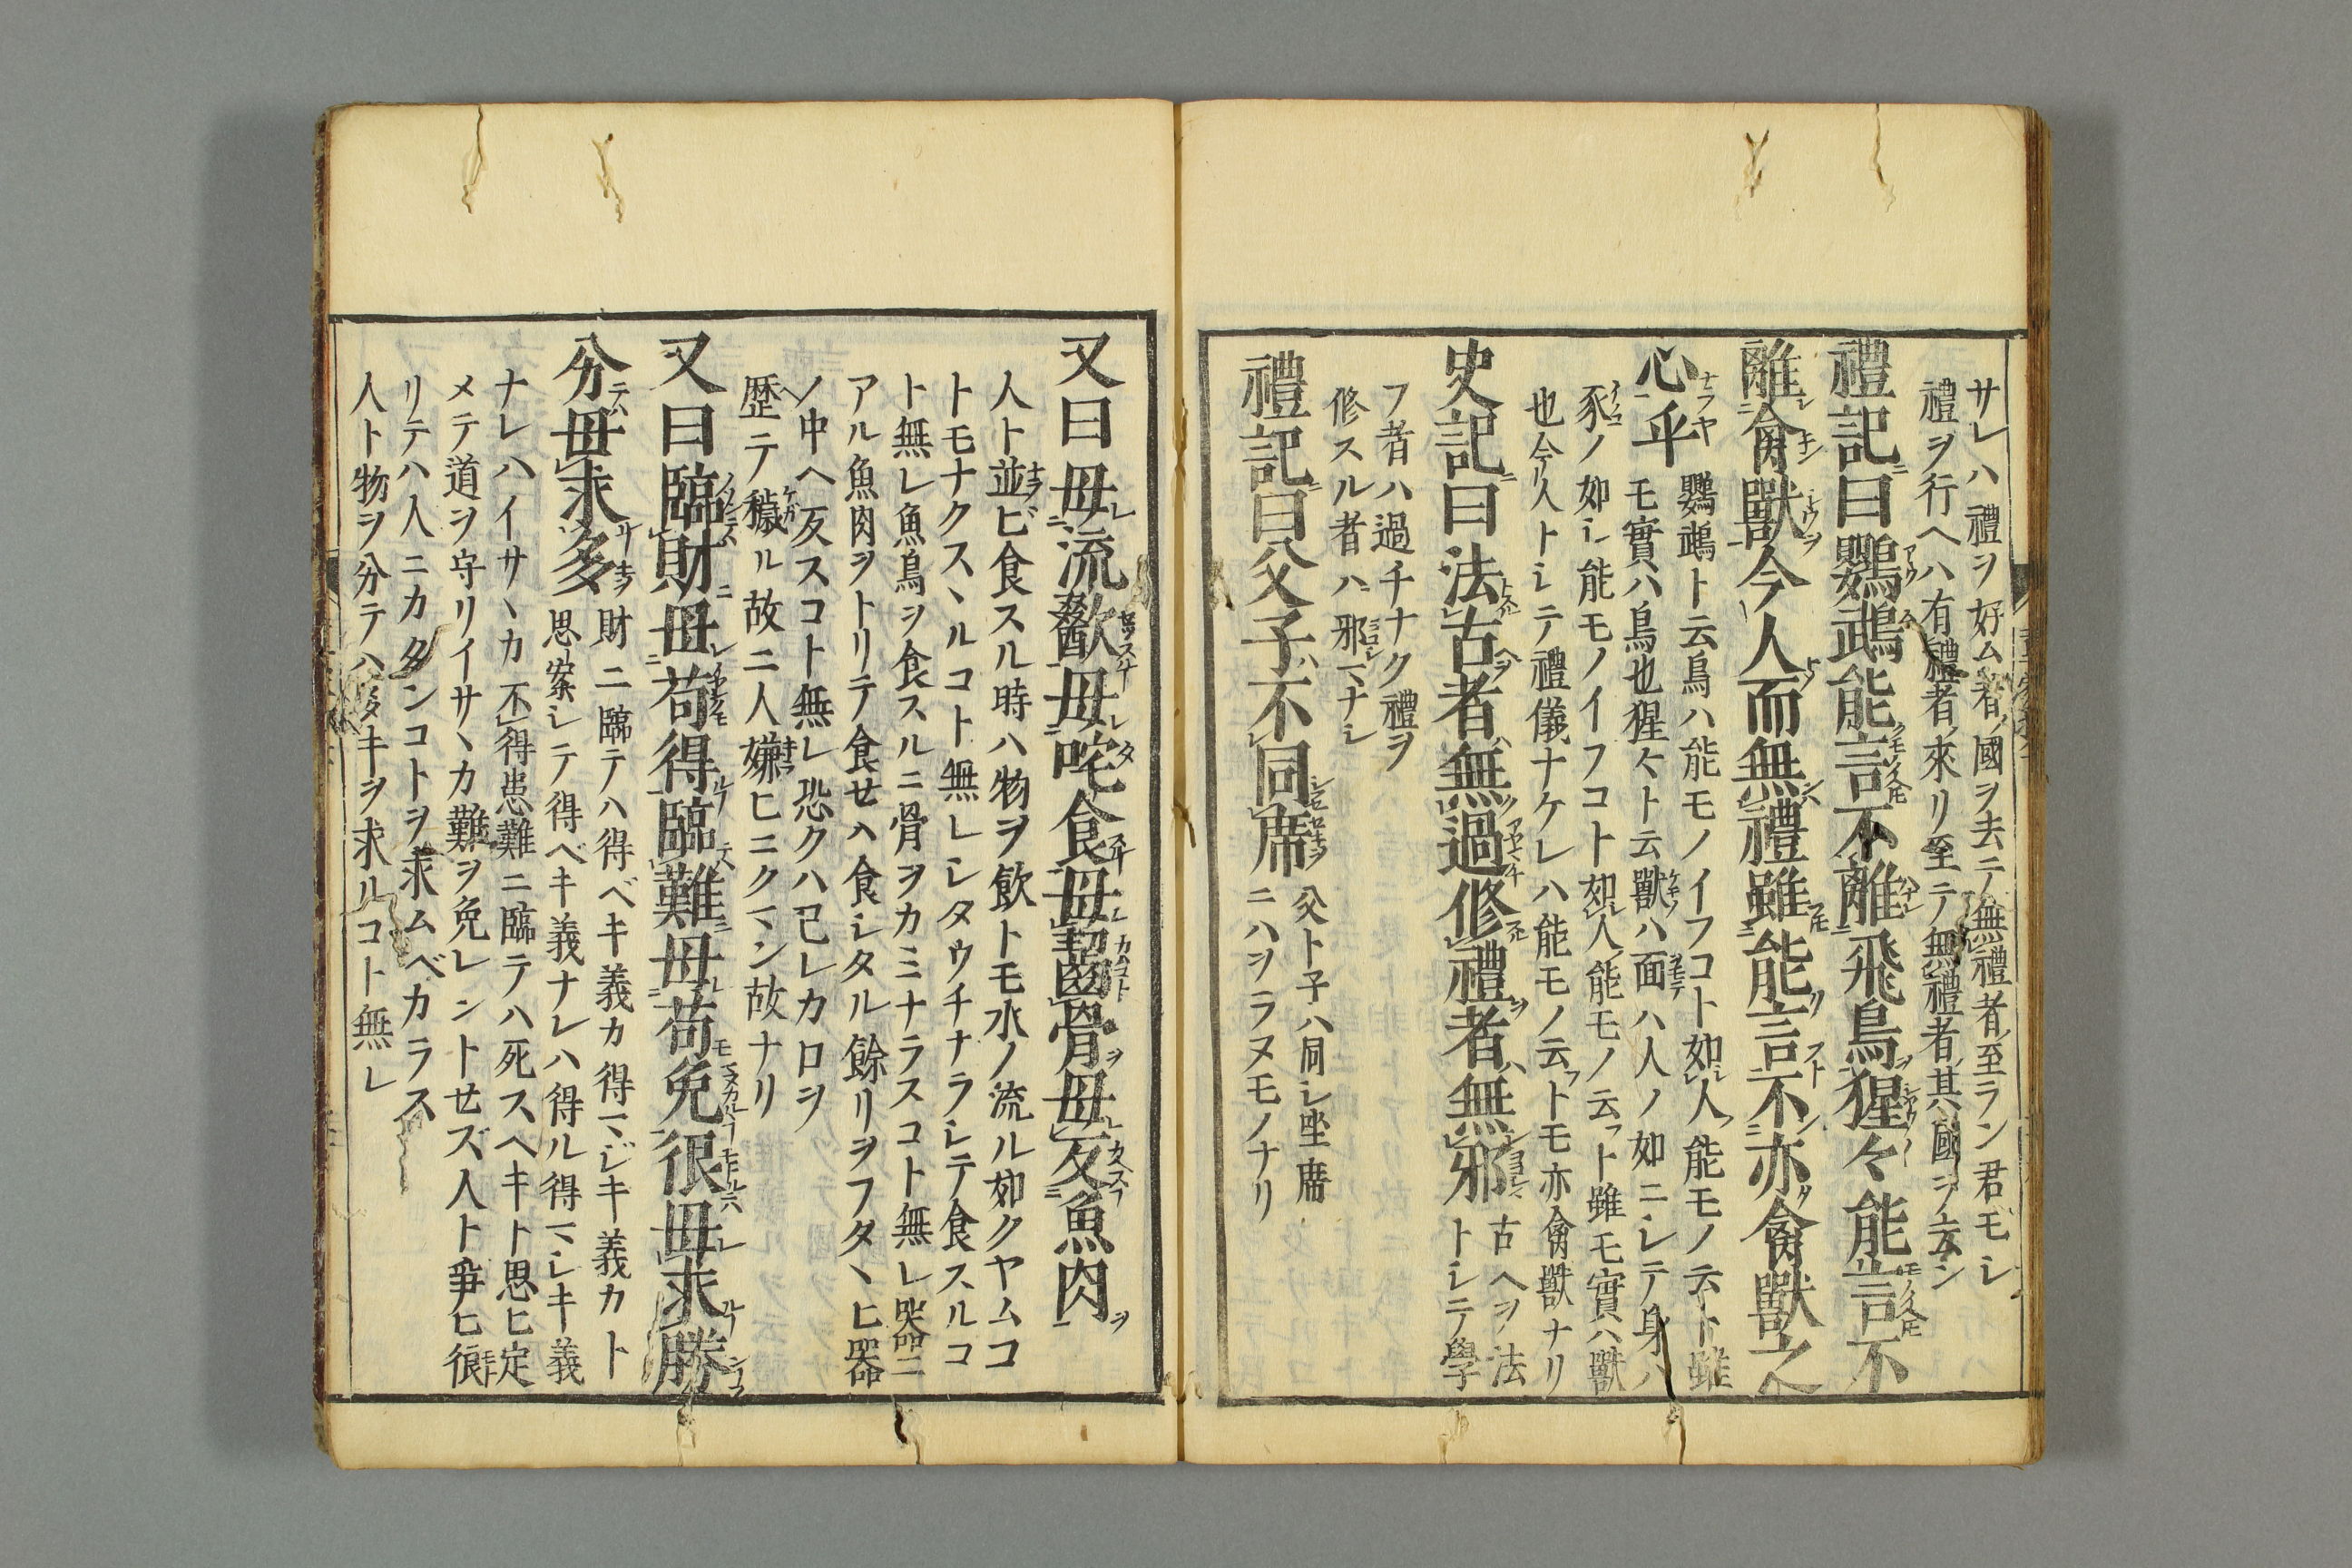 サレハ禮ヲ好ム者ノ國ヲ去テ無禮者ノ至ラン君モシ
禮ヲ行ヘハ有禮者ノ來リ至テ無禮者ハ其國ヲ去ン
禮記ニ曰鸚鵡能言不離飛鳥猩々能言不
離禽獸今人而無禮雖能言不亦禽獸之
心乎
鸚鵡ト云鳥ハ能モノイフコト如人ノ能モノ云ト雖
モ實ハ鳥也猩々ト云獸ハ面ハ人ノ如ニレテ身ハ
豕ノ如シ能モノイフコト如人ノ能モノ云フト雖モ實ハ獸
也今人トシテ禮儀ナケレハ能モノ云フトモ亦禽獸ナリ
史記ニ曰法古者無過修禮者無邪
古ヘヲ法
トレテ學
フ者ハ過チナク禮ヲ
修スル者ハ邪マナシ
禮記ニ曰父子不同席
父ト子ハ同シ座席
ニハヲラヌモノナリ
又曰毋流歠毋咤食毋齧骨毋反魚肉
人ト並ビ食スル時ハ物ヲ飲トモ水ノ流ル如クヤムコ
トモナクスヽルコト無レシタウチナラシテ食スルコ
ト無レ魚鳥ヲ食スルニ骨ヲカミナラスコト無レ器ニ
アル魚肉ヲトリテ食せハ食シタル餘リヲフタヽヒ器
ノ中ヘ反スコト無レ恐クハ己レカ口ヲ
歴テ穢ル故ニ人嫌ヒニクマン故ナリ
又曰臨財毋苟得臨難毋苟免很毋求勝
分毋求多
財ニ臨テハ得ベキ義カ得マジキ義カト
思案シテ得ベキ義ナレハ得ル得マシキ義
ナレハイサヽカ不得患難ニ臨テハ死スヘキト思ヒ定
メテ道ヲ守リイサヽカ難ヲ免レントせズ人ト爭ヒ很
リテハ人ニカタンコトヲ求ムベカラス
人ト物ヲ分テハ多キヲ求ルコト無レ